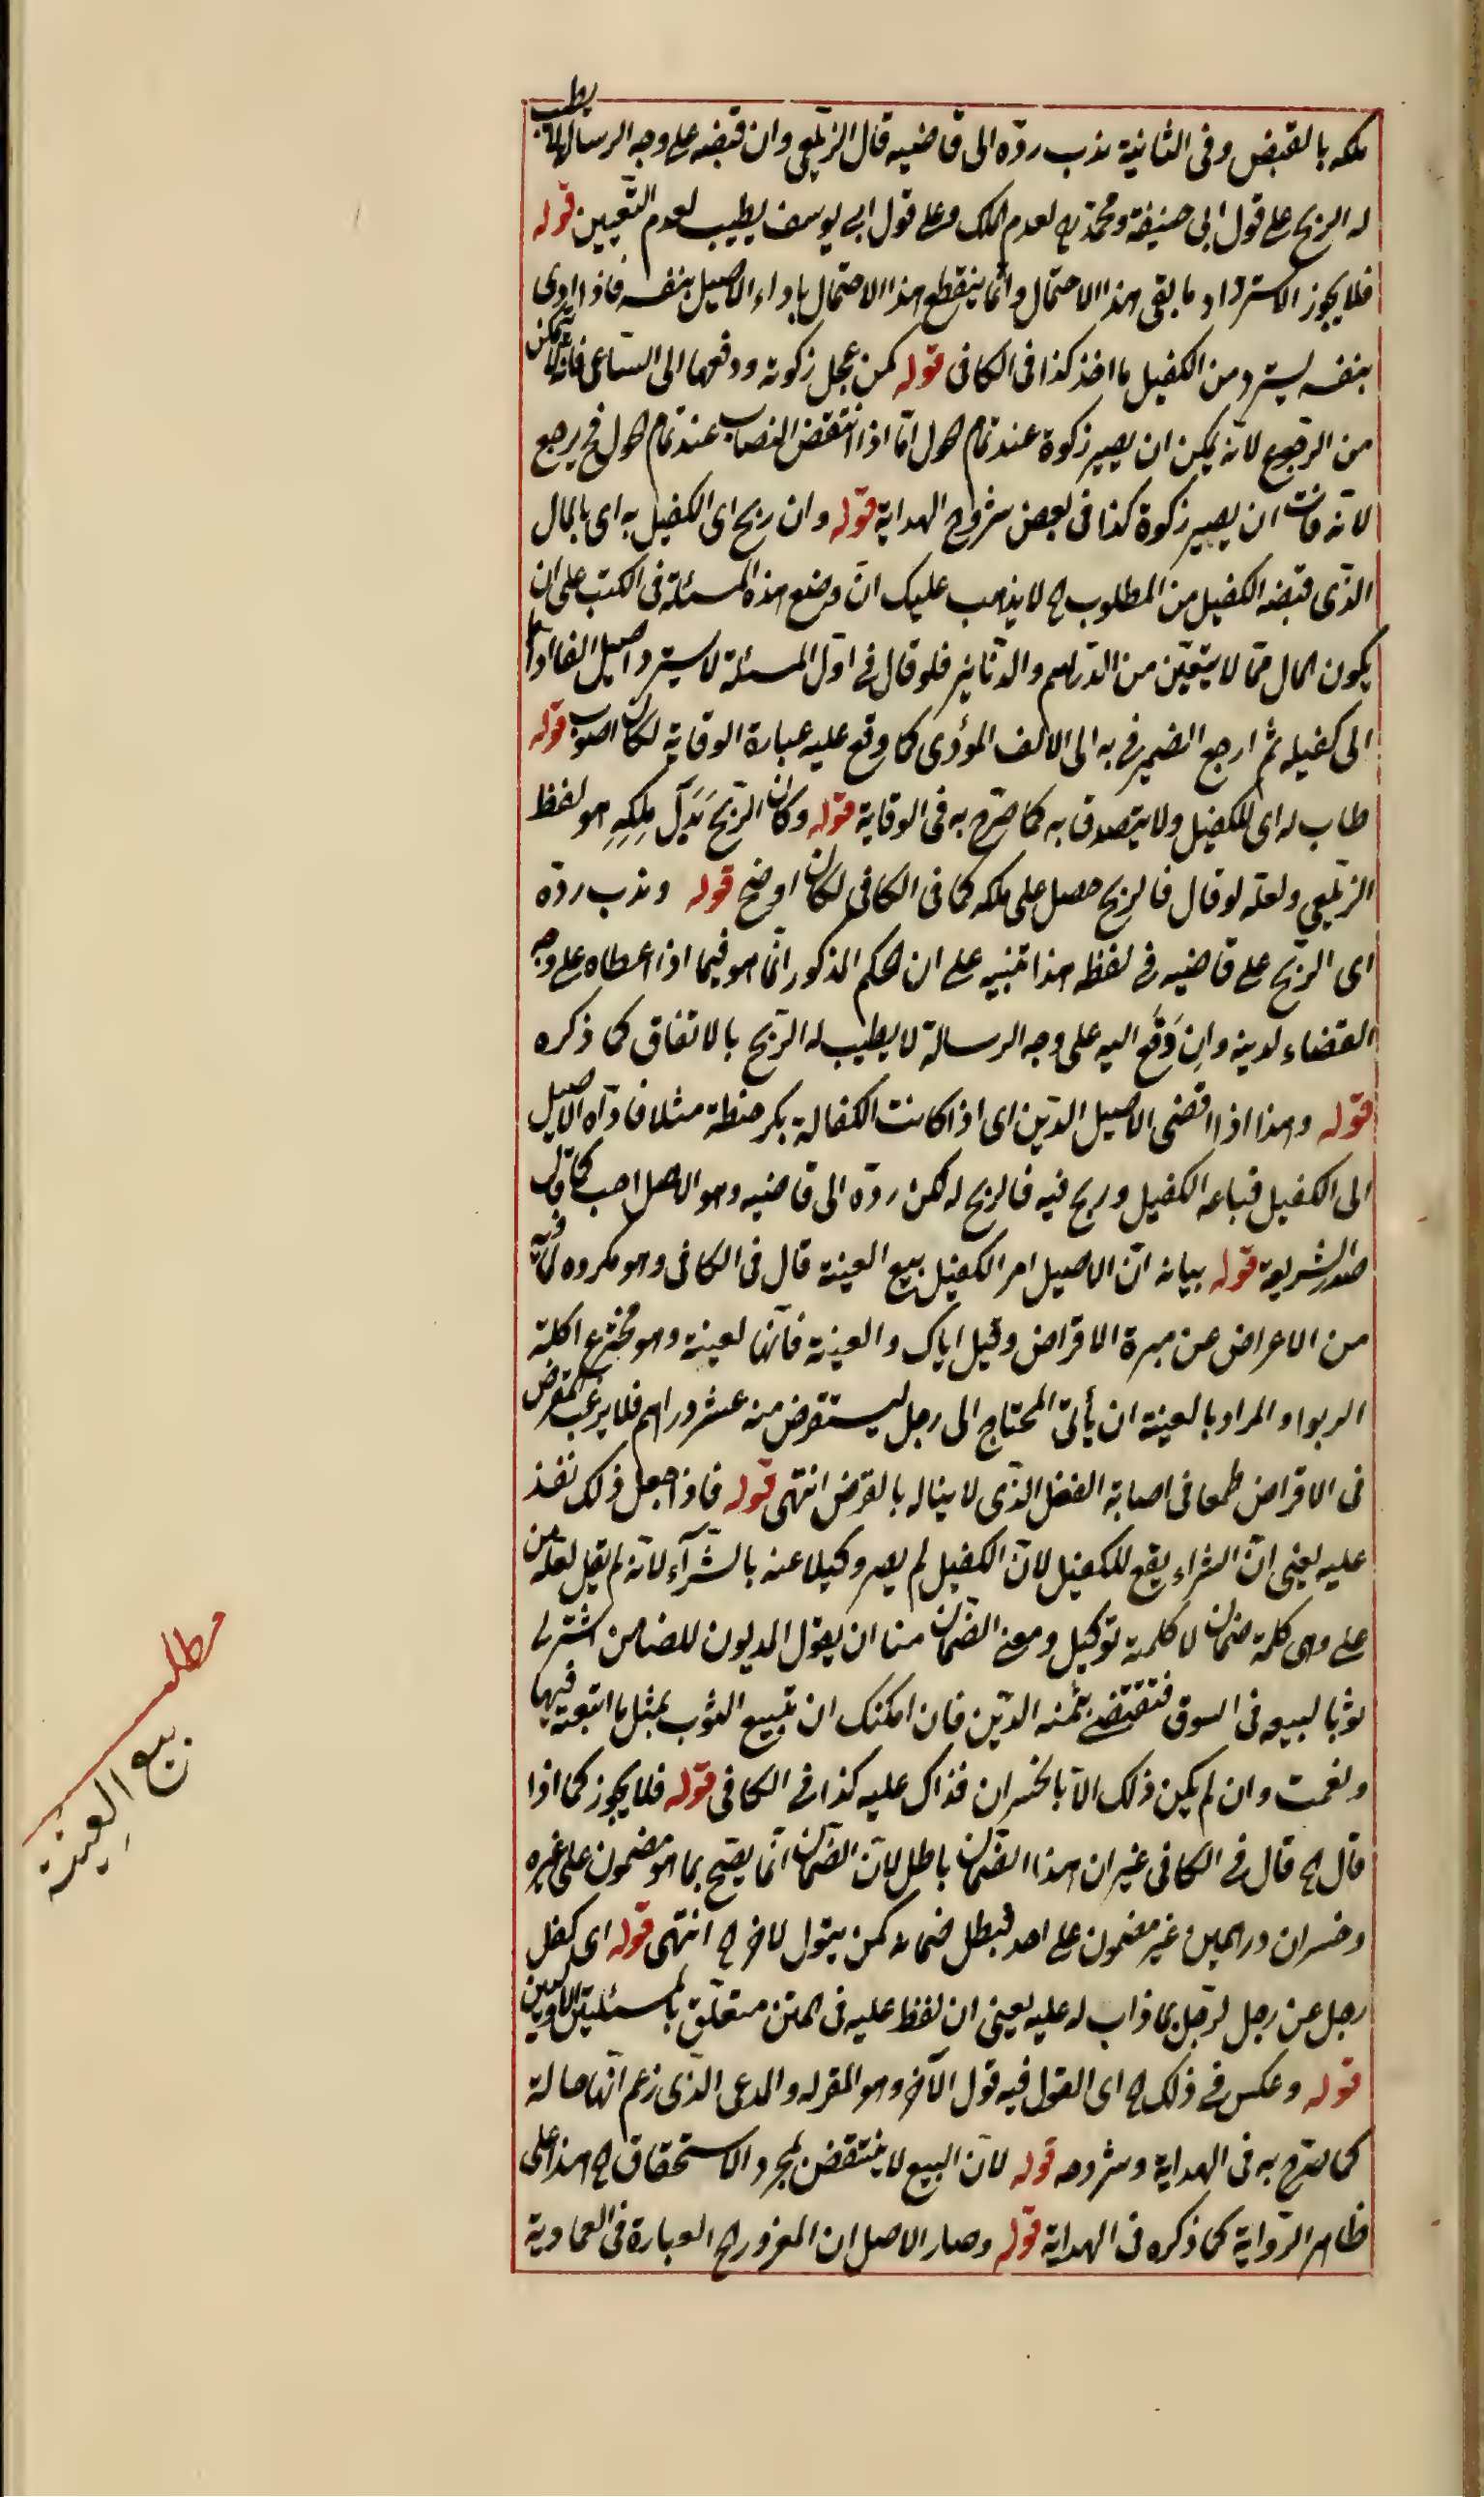 ملكه بالقبض وفى الثانية ندب ردّه الى قاضيه قال الزيلعى وان قبضه على وجه الرسالة لا يطيب
له الربح على قول ابى حنيفة ومحمد رح لعدم الملك وعلى قول ابى يوسف يطيب لعدم التّعيين قوله
فلا يجوز الاسترداد ما بقى هذا الاحتمال وانّما ينقطع هذا الاحتمال باداء الاصيل بنفسه فاذا ادى
بنفسه يسترد من الكفيل ما اخذ كذا فى الكافى قوله كمن عجل زكوته ودفعها الى السّاعى فانّه لا يتمكن
من الرّجوع لانّه يمكن ان يصير زكوة عند تمام الحول امّا اذا انتقض النصاب عند تمام الحول فح يرجع
لانّه فات ان يصير زكوة كذا فى بعض شروح الهداية قوله وان ربح اى الكفيل به اى بالمال
الّذى قبضه الكفيل من المطلوب الخ لا يذهب عليك انّ وضع هذه المسئلة فى الكتب على ان
يكون المال ممّا لا يتعيّن من الدّراهم والدّنانير فلو قال فى اوّل المسئلة لا يسترد اصيل الفا ادّاها
الى كفيله ثم ارجع الضمير فى به الى الالف المؤدى كما وقع عليه عبارة الوقاية لكان اصوب قوله
طاب له اى للكفيل ولا يتصدق به كما صرّح به فى الوقاية قوله وكان الرّبح بَدَلَ مِلكِهِ هو لفظ
الزيلعى ولعلّه لو قال فالربح حصل على ملكه كما فى الكافى لكان اوضح قوله وندب ردّه
اى الرّبح على قاضيه فى لفظه هذا تنبيه على ان الحكم المذكور انّما هو فيما اذا اعطاه على وجه
القضاء لدينه وان دَفَع اليه على وجه الرسالة لا يطيب له الرّبح بالاتفاق كما ذكره
قوله وهذا اذا قضى الاصيل الدّين اى اذا كانت الكفالة بكر حنطة مثلا فادّاه الاصيل
الى الكفيل فباعه الكفيل وربح فيه فالربح له لكن ردّه الى قاضيه وهو الاصل احب كما قال
صدر الشريعة قوله بيانه انّ الاصيل امر الكفيل ببيع العينة قال فى الكافى وهو مكروه لما فيه
من الاعراض عن مبرة الاقراض وقيل اياك والعينة فانّها لعينة وهو مخترع اكلة
الربوا والمراد بالعينة ان يأتى المحتاج الى رجل ليستقرض منه عشر دراهم فلا يرغب المقرض
فى الاقراض طمعا فى اصابة الفضل الّذى لا يناله بالقرض انتهى قوله فاذا جعل ذلك نفذ
عليه يعنى انّ الشراء يقع للكفيل لانّ الكفيل لم يصر وكيلا عنه بالشّرآء لانّه لم يقل لعلّه من
على وهى كلمة ضمان لا كلمة توكيل ومعنى الضّمان هنا ان يقول المديون للضامن اشتر لى
ثوبا لبيعه فى السوق فتقتضى بثمنه الدّين فان امكنك ان تبيع الثوب بمثل ما ابتعته فبها
ونعمت وان لم يكن ذلك الاّ بالخسران فذاك عليه كذا فى الكافى قوله فلا يجوز كما اذا
قال الخ قال فى الكافى غير ان هذا الضّمان باطل لانّ الضّمان انّما يصّح بما هو مضمون على غيره
وخسران دراهمين غير مضمون على احد فبطل ضمانه كمن يقول لاخر الخ انتهى قوله اى كفل
رجل عن رجل لرّجل بما ذاب له عليه يعنى ان لفظ عليه فى المتن متعلّق بالمسئلتين الاوليين
قوله وعكس فى ذلك الخ اى القول فيه قول الآخر وهو المقر له والمدعى الّذى زعم انّها حالة
كما صرّح به فى الهداية وشروحه قوله لانّ البيع لا ينتقض بمجرد الاستحقاق الخ هذا على
ظاهر الرّواية كما ذكره فى الهداية قوله وصار الاصل ان المغرور الخ العبارة فى العمادية
مطلب
بيع العِينة